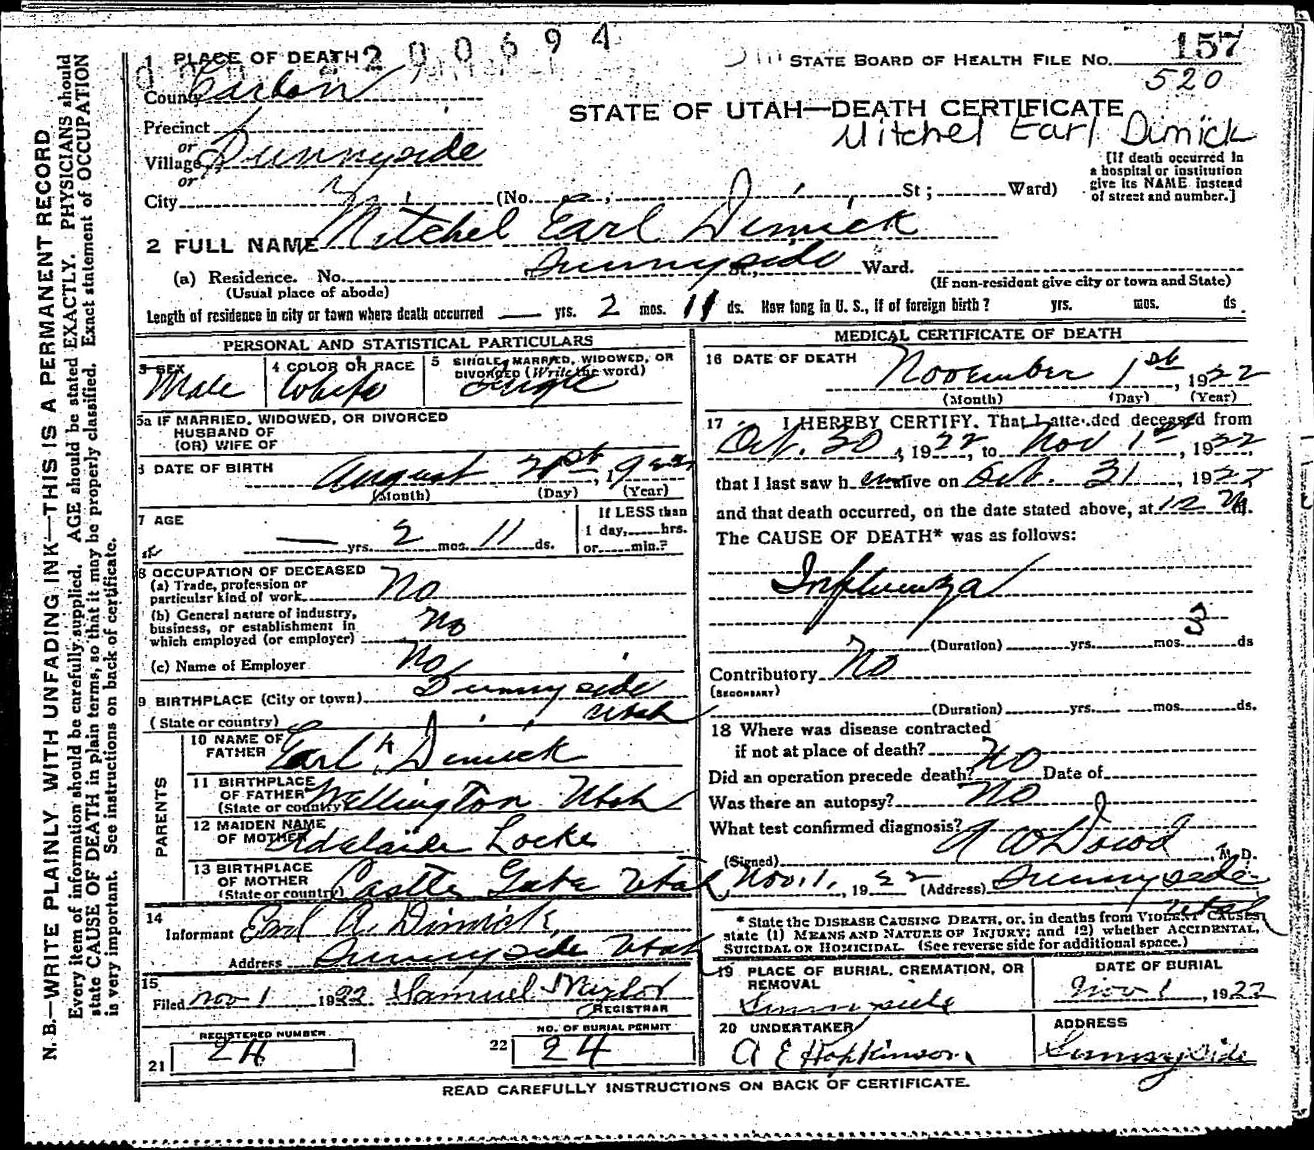 200694
1 PLACE OF DEATH
STATE BOARD OF HEALTH FILE NO. 157
520
County Carbon
STATE OF UTAH—DEATH CERTIFICATE
Mitchel Earl Dimick
Precinct
or
Village Sunnyside
or
City (No. ; St ; Ward)
[If death occurred in
a hospital or institution
give its NAME instead
of street and number.]
2 FULL NAME Mitchel Earl Dimick
(a) Residence. No. Sunnyside St., Ward.
(Usual place of abode)
(If non-resident give city or town and State)
Length of residence in city or town where death occurred — yrs. 2 mos. 11 ds. How long in U. S., if of foreign birth? yrs. mos. ds
PERSONAL AND STATISTICAL PARTICULARS
3 SEX Male
4 COLOR OR RACE White
5 SINGLE, MARRIED, WIDOWED, OR
DIVORCED (Write the word) Single
5a IF MARRIED, WIDOWED, OR DIVORCED
HUSBAND OF
(OR) WIFE OF
6 DATE OF BIRTH August 21st, 1922
(Month) (Day) (Year)
7 AGE — yrs. 2 mos. 11 ds.
If LESS than
1 day, hrs.
or min.?
8 OCCUPATION OF DECEASED
(a) Trade, profession or
particular kind of work No
(b) General nature of industry,
business, or establishment in
which employed (or employer) No
(c) Name of Employer No
9 BIRTHPLACE (City or town) Sunnyside
(State or country) Utah
PARENTS
10 NAME OF
FATHER Earl A Dimick
11 BIRTHPLACE
OF FATHER
(State or country) Wellington Utah
12 MAIDEN NAME
OF MOTHER Adelaide Locke
13 BIRTHPLACE
OF MOTHER
(State or country) Castle Gate Utah
14
Informant Earl A. Dimick
Address Sunnyside Utah
15
Filed Nov 1 1922 Samuel Naylor
REGISTRAR
REGISTERED NUMBER
21 24
NO. OF BURIAL PERMIT
22 24
MEDICAL CERTIFICATE OF DEATH
16 DATE OF DEATH November 1st, 1922
(Month) (Day) (Year)
17 I HEREBY CERTIFY, That I attended deceased from
Oct. 30, 1922, to Nov 1st, 1922
that I last saw h em alive on Oct. 31, 1922
and that death occurred, on the date stated above, at 12 M.
The CAUSE OF DEATH* was as follows:
Influenza
(Duration) yrs. mos. 3 ds
Contributory No
(SECONDARY)
(Duration) yrs. mos. ds.
18 Where was disease contracted
if not at place of death? No
Did an operation precede death? No Date of
Was there an autopsy? No
What test confirmed diagnosis?
(Signed) A W Dowd, M. D.
Nov. 1, 1922 (Address) Sunnyside
Utah
* State the DISEASE CAUSING DEATH, or, in deaths from VIOLENT CAUSES,
state (1) MEANS AND NATURE OF INJURY; and (2) whether ACCIDENTAL,
SUICIDAL or HOMICIDAL. (See reverse side for additional space.)
19 PLACE OF BURIAL, CREMATION, OR
REMOVAL
Sunnyside
DATE OF BURIAL
Nov 1, 1922
20 UNDERTAKER
A E Hopkinson
ADDRESS
Sunnyside
READ CAREFULLY INSTRUCTIONS ON BACK OF CERTIFICATE.
N. B.—WRITE PLAINLY, WITH UNFADING INK—THIS IS A PERMANENT RECORD
Every item of information should be carefully supplied. AGE should be stated EXACTLY. PHYSICIANS should
state CAUSE OF DEATH in plain terms, so that it may be properly classified. Exact statement of OCCUPATION
is very important. See instructions on back of certificate.